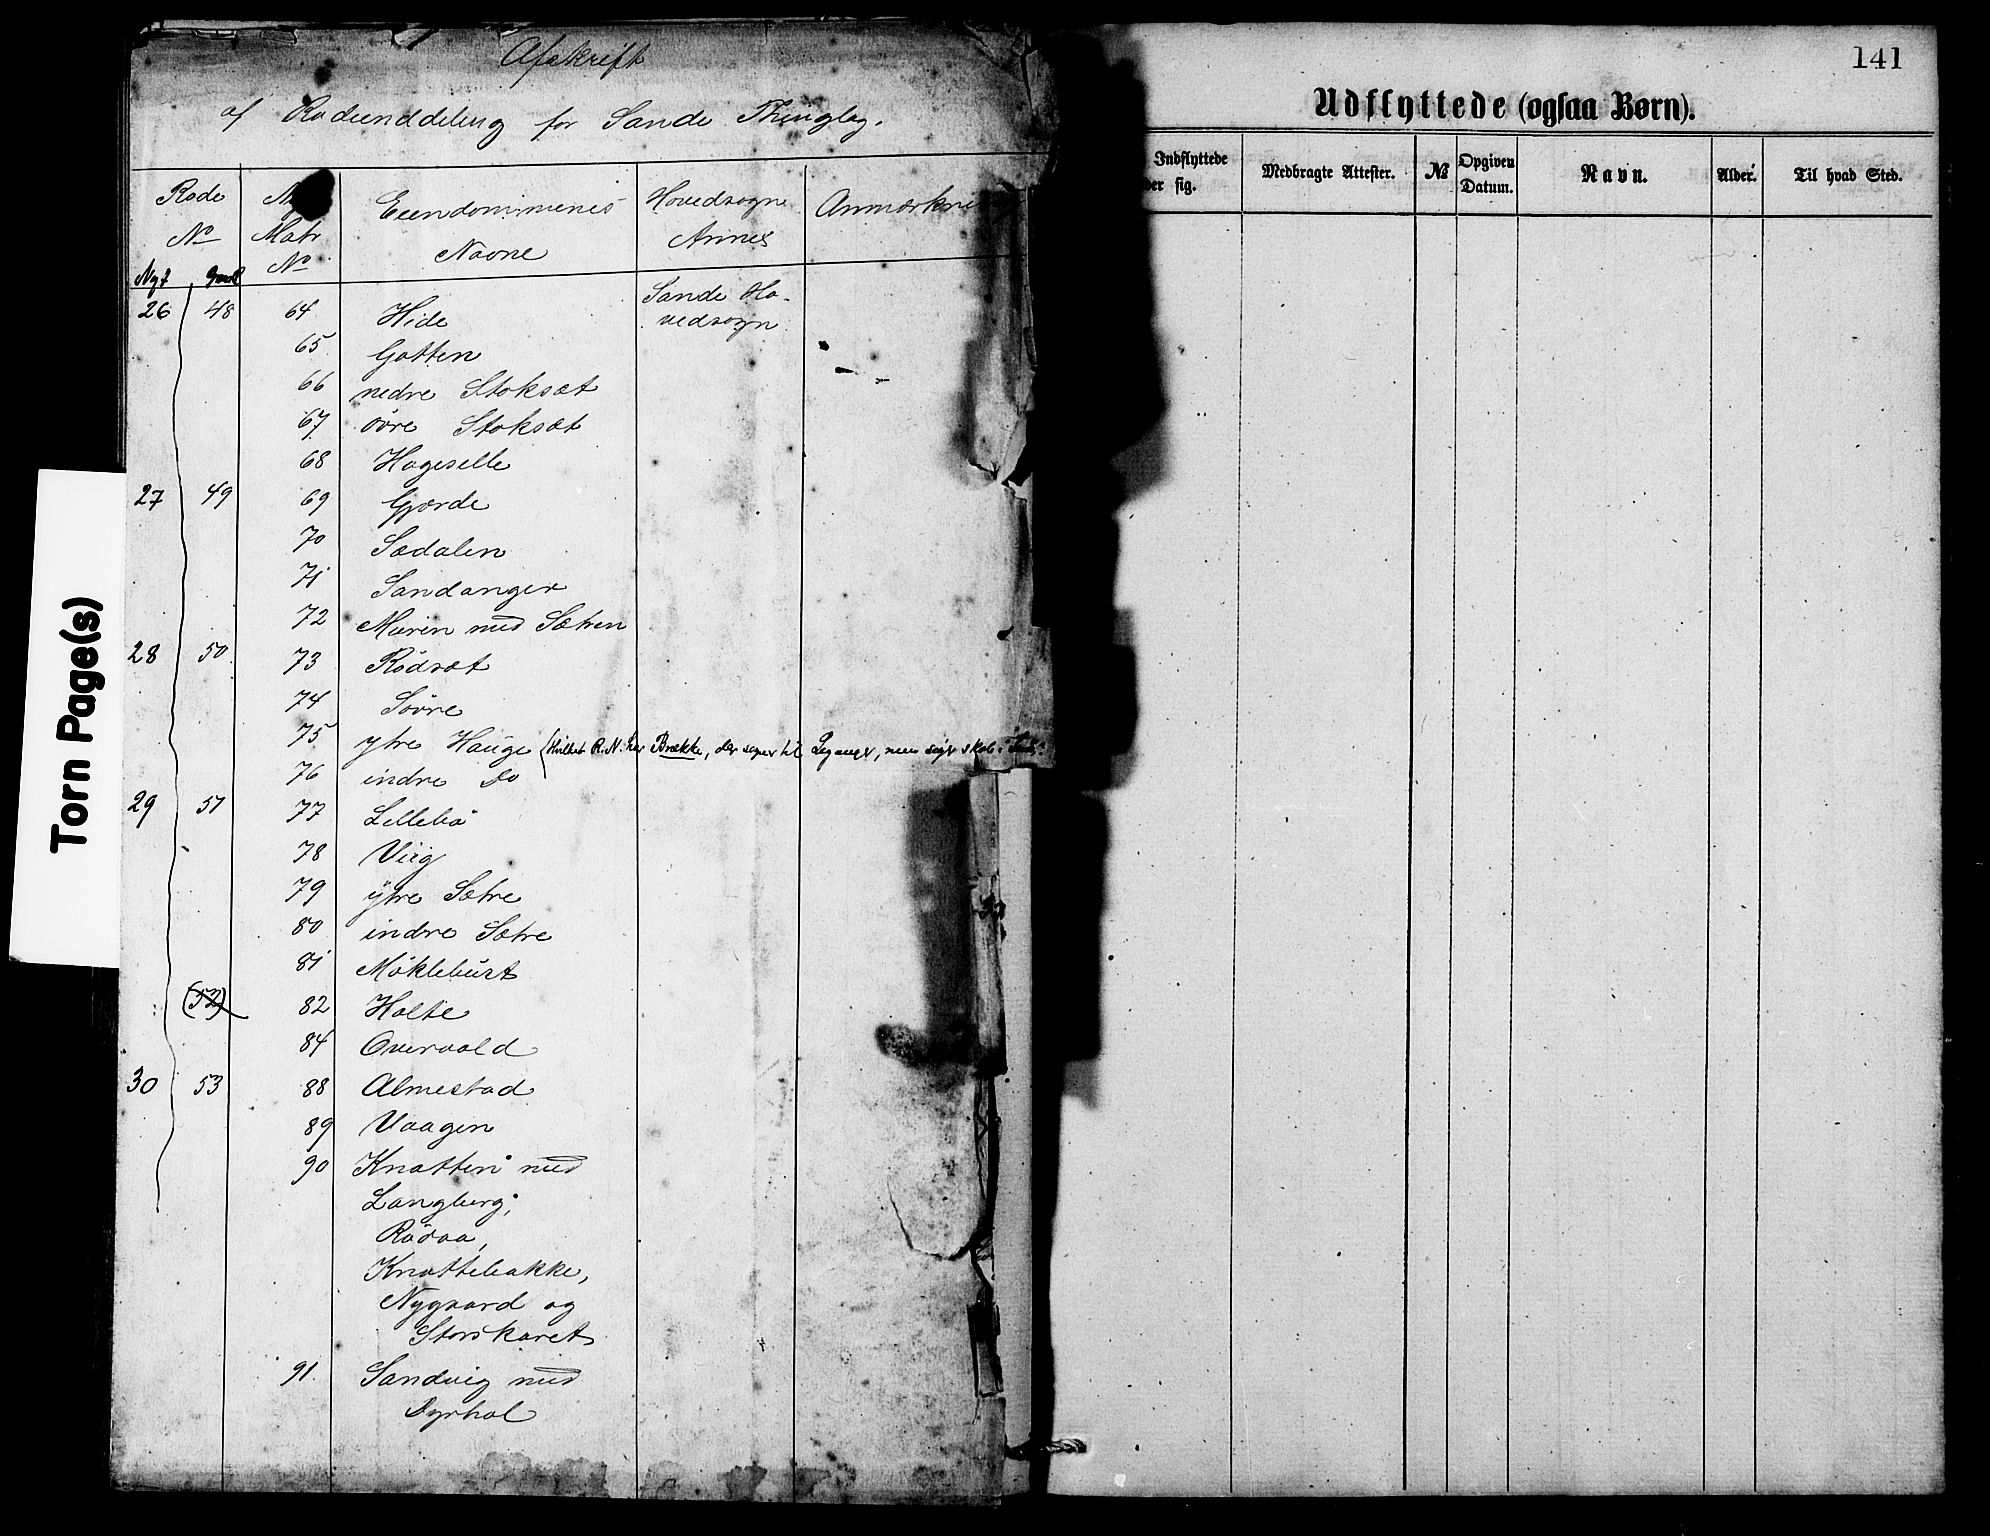 Afskrift
af Rodeinddeling for Sande Thinglag.
Rode No Matr No Eiendommenes Navne Hovedsogn Annex
Nyt Gml
26 48 64 Hide Sande Ho-
vedsogn
65 Gotten
66 nedre Stoksæt
67 övre Stoksæt
68 Hageselle
27 49 69 Gjærde
70 Sædalen
71 Sandanger
72 Myren med Sætren
28 50 73 Rödsæt
74 Sövre
75 ytre Hauge (Hvilket R.N. har Brække, der sogner til Leganger, men søger skole i
76 indre Do
29 51 77 Lillebö
78 Viig
79 ytre Sætre
80 indre Sætre
81 Möklebust
(52) 82 Holte
84 Overvold
30 53 88 Almestad
89 Vaagen
90 Knotten med
Langberg,
Rödaa,
Knottebakke,
Nygaard og
Storskaret
91. Sandvig med
Dyrhol
Torn Page(s)
141
Udflyttede (ogsaa Børn).
Indflyttede
der sig. Medbragte Attester. № Opgiven Datum. Navn. Alder. Til hvad Sted.